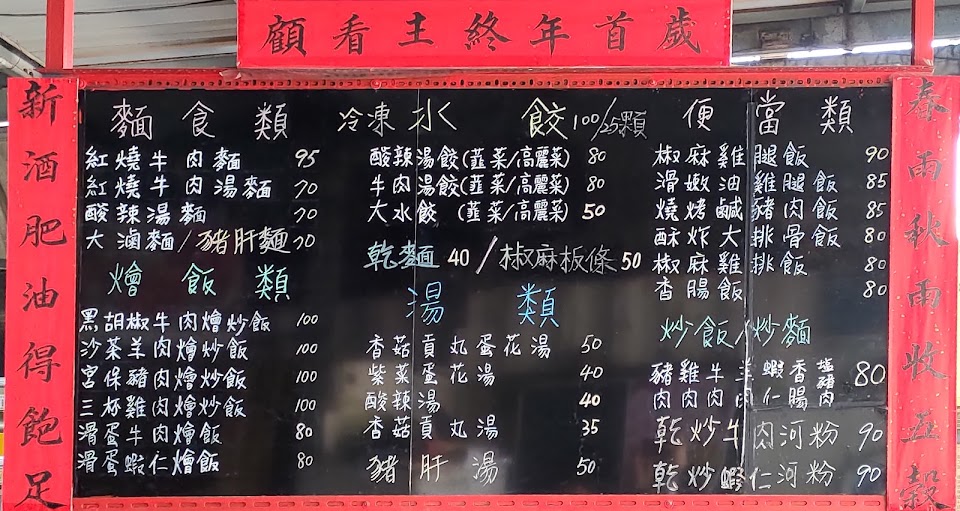 顧看土終年首歲
新酒肥油得飽足
麵食類
紅燒牛肉麵 95
紅燒牛肉湯麵 70
酸辣湯麵 70
大滷麵/豬肝麵 70
燴飯類
黑胡椒牛肉燴炒飯 100
沙茶羊肉燴炒飯 100
宮保豬肉燴炒飯 100
三杯雞肉燴炒飯 100
滑蛋牛肉燴飯 80
滑蛋蝦仁燴飯 80
冷凍水餃100/25顆
酸辣湯餃(韮菜/高麗菜) 80
牛肉湯餃(韮菜/高麗菜) 80
大水餃(韮菜/高麗菜) 50
乾麵 40/椒麻板條 50
湯類
香菇貢丸蛋花湯 50
紫菜蛋花湯 40
酸辣湯 40
香菇貢丸湯 35
豬肝湯 50
便當類
椒麻雞腿飯 90
滑嫩油雞腿飯 85
燒烤鹹豬肉飯 85
酥炸大排骨飯 80
椒麻雞排飯 80
香腸飯 80
炒飯/炒麵
豬肉 雞肉 牛肉 羊肉 蝦仁 香腸 鹽豬肉 80
乾炒牛肉河粉 90
乾炒蝦仁河粉 90
春雨秋雨收五穀